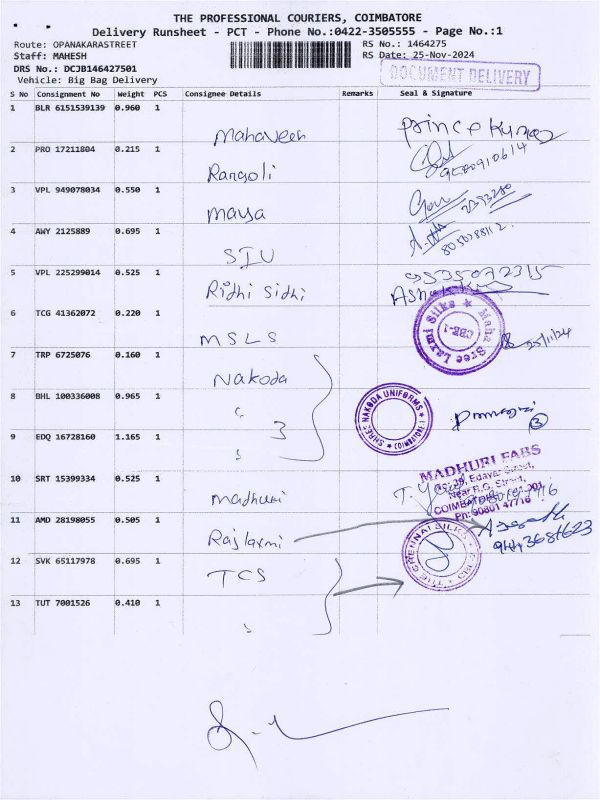 THE PROFESSIONAL COURIERS, COIMBATORE
Delivery Runsheet - PCT - Phone No.:0422-3505555 - Page No.:1
Route: OPANAKARASTREET RS No.: 1464275
Staff: MAHESH RS Date: 25-Nov-2024
DRS No.: DCJB146427501
DOCUMENT DELIVERY
Vehicle: Big Bag Delivery
S No Consignment No Weight PCS Consignee Details Remarks Seal & Signature
1 BLR 6151539139 0.960 1 Mahaveer Prince Kumar
2 PRO 17211804 0.215 1 Rangoli
3 VPL 949078034 0.550 1 maya
4 AWY 2125889 0.695 1 SIU
5 VPL 225299014 0.525 1 Ridhi Sidhi 9535072315
6 TCG 41362072 0.220 1 MSLS Maha Sree Laxmi Silks CBE-1 25/11/24
7 TRP 6725076 0.160 1 Nakoda
8 BHL 100336008 0.965 1 3 SHREE NAKODA UNIFORMS 3
9 EDQ 16728160 1.165 1
10 SRT 15399334 0.525 1 madhuri MADHURI FABS
Near R.G. Street,
Ph: 9080147716
11 AMD 28198055 0.505 1 Rajlaxmi 9443681623
12 SVK 65117978 0.695 1 TCS
13 TUT 7001526 0.410 1